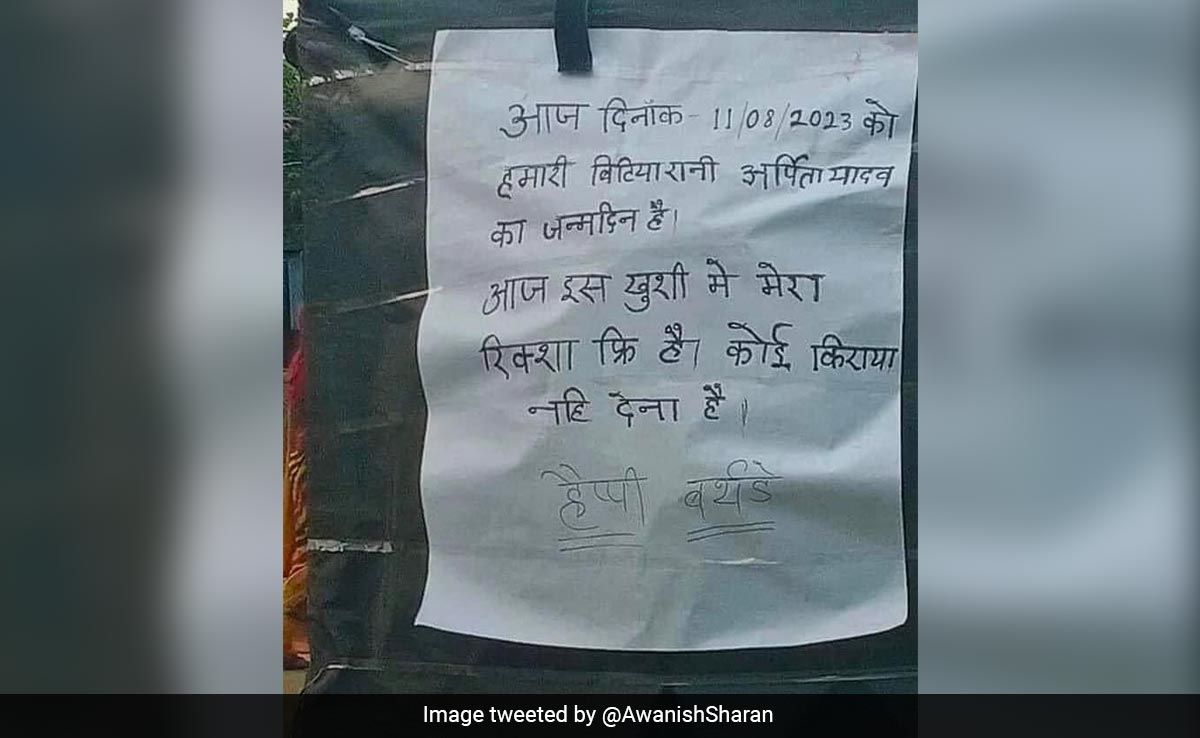 आज दिनाँक - 11/08/2023 को
हमारी बिटिया रानी अर्पिता यादव
का जन्मदिन है।
आज इस खुशी मे मेरा
रिक्शा फ्रि है। कोई किराया
नहि देना है।
हैप्पी बर्थडे
Image tweeted by @AwanishSharan